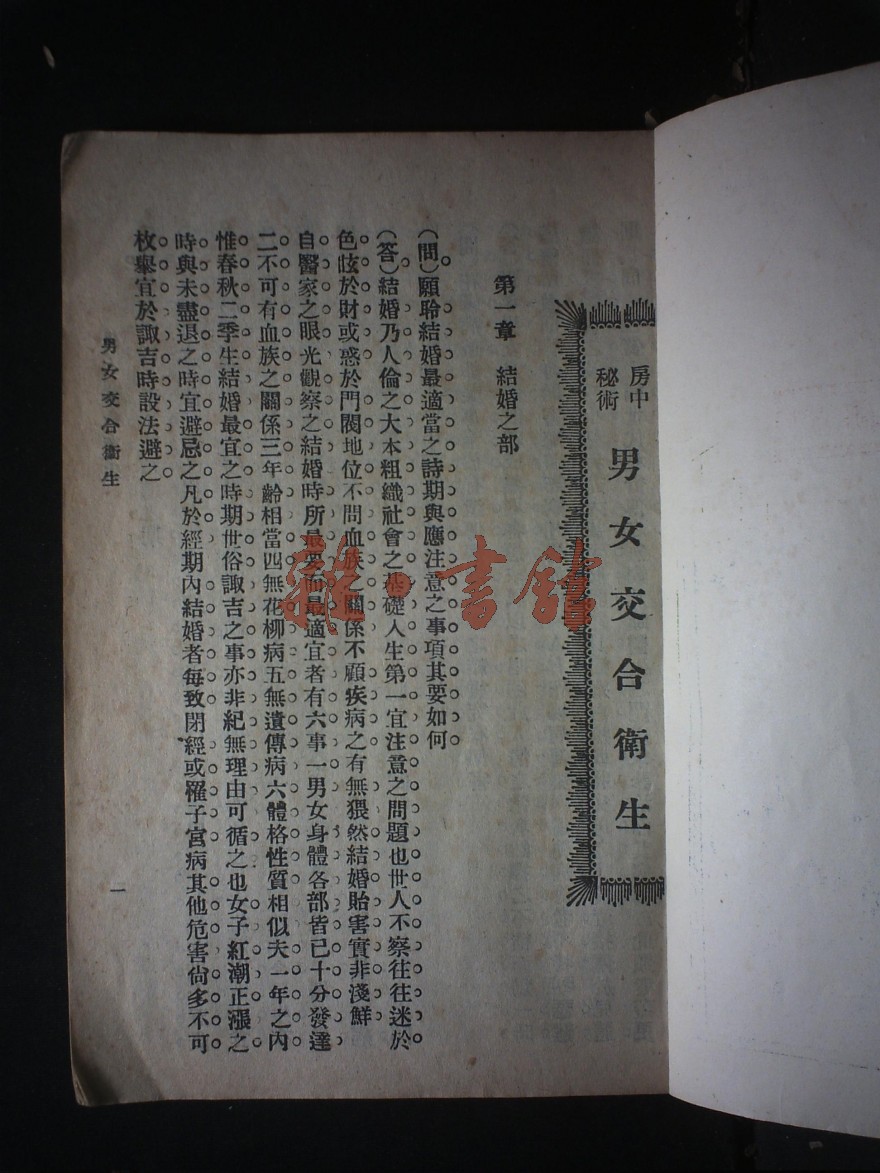 房中
秘術
男女交合衛生
第一章 結婚之部
(問)願聆結婚最適當之詩期與應注意之事項其要如何
(答)結婚乃人倫之大本粗織社會之基礎人生第一宜注意之問題也世人不察往往迷於
色眩於財或惑於門閥地位不問血族之關係不顧疾病之有無猥然結婚貽害實非淺鮮
自醫家之眼光觀察之結婚時所最要而最適宜者有六事一男女身體各部皆已十分發達
二不可有血族之關係三年齡相當四無花柳病五無遺傳病六體格性質相似夫一年之內
惟春秋二季生結婚最宜之時期世俗諏吉之事亦非紀無理由可循之也女子紅潮正漲之
時與未盡退之時宜避忌之凡於經期內結婚者每致閉經或罹子宮病其他危害尙多不可
枚舉宜於諏吉時設法避之
男女交合衛生
一
雜·書館